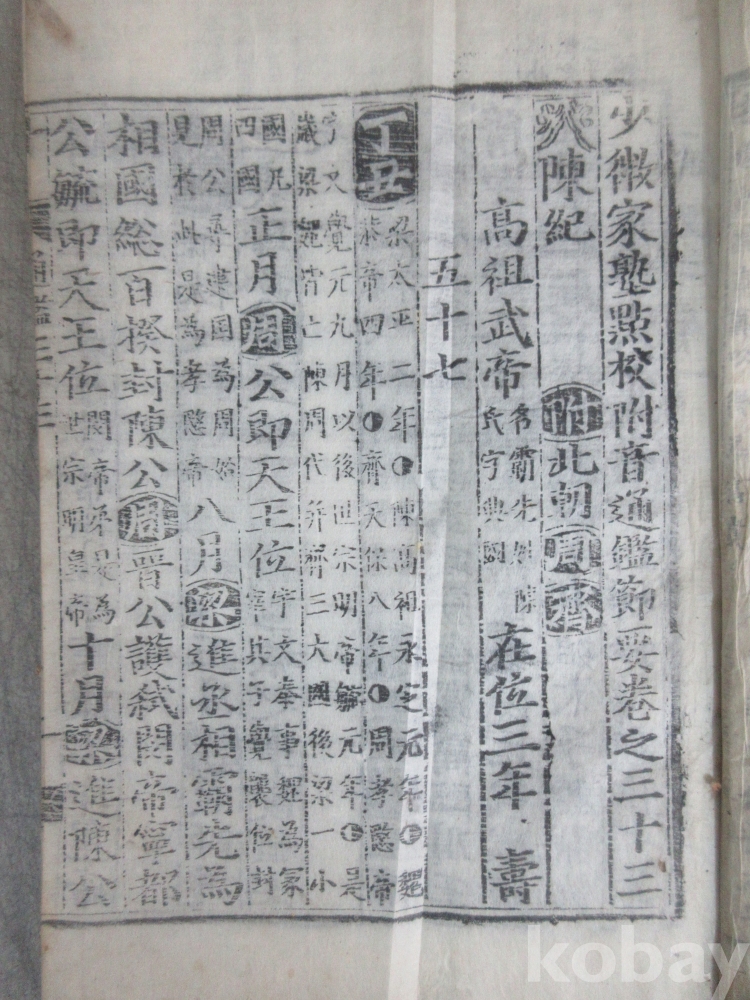 少微家塾點校附音通鑑節要卷之三十三
陳紀 附北朝周齊
高祖武帝 名霸先姓陳氏字興國 在位三年壽
五十七
丁丑 梁太平二年陳高祖永定元年魏恭帝四年齊天保八年周孝愍帝
宇文覺元九月以後世宗明帝毓元年是歲梁魏皆亡陳周代并齊三大國後梁一小
國凡四國 正月周公即天王位 宇文泰事魏為冢宰其子覺襲位封
周公尋建國為周始見於此是為孝愍帝 八月梁進丞相霸先為
相國総百揆封陳公周晉公護弑閔帝寧都
公毓即天王位 閔帝弟是為世宗明皇帝 十月梁進陳公
通鑑三十三
kobay